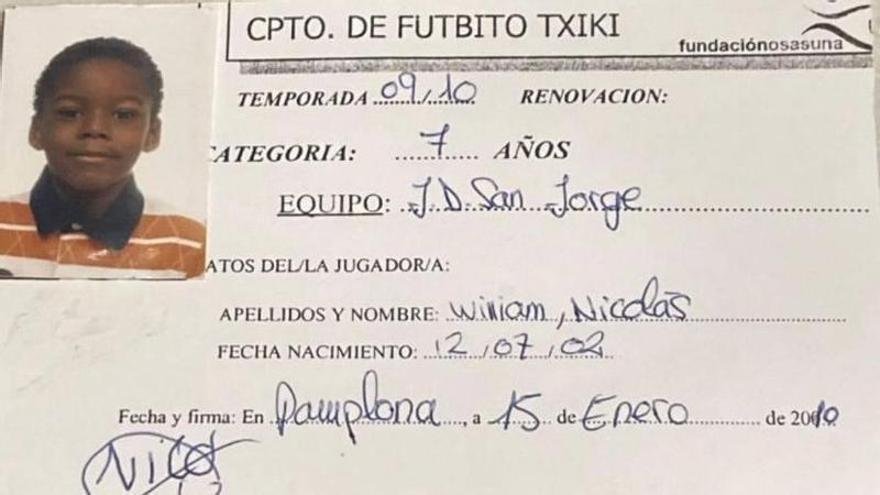 CPTO. DE FUTBITO TXIKI
fundaciónosasuna
TEMPORADA 09/10 RENOVACION:
CATEGORIA: 7 AÑOS
EQUIPO: J.D. San Jorge
ATOS DEL/LA JUGADOR/A:
APELLIDOS Y NOMBRE: William, Nicolás
FECHA NACIMIENTO: 12/07/02
Fecha y firma: En Pamplona, a 15 de Enero de 2010
Nico